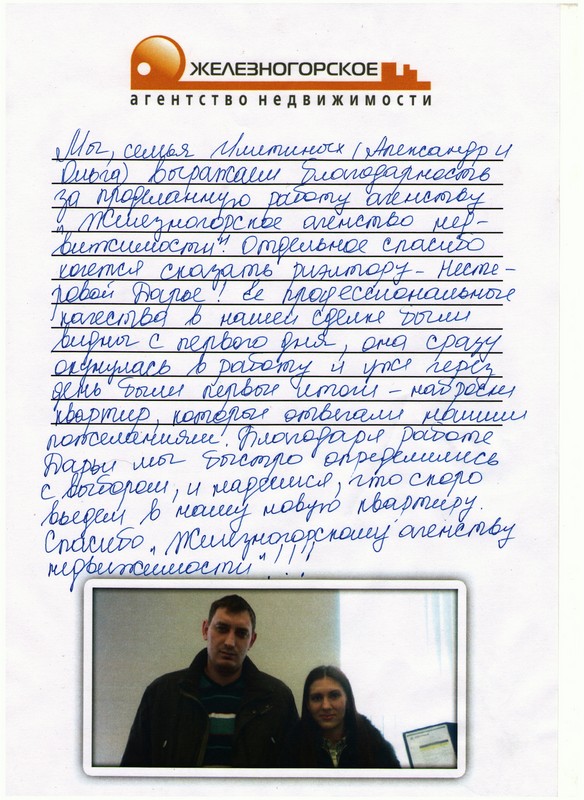 ЖЕЛЕЗНОГОРСКОЕ
агентство недвижимости
Мы, семья (Александр и
Ольга) выражаем благодарность
за проделанную работу агенству
„Железногорское агенство нед-
вижимости". Отдельное спасибо
хочется сказать риэлтору - Несте-
ровой Дарье! Ее профессиональные
качества в нашей сделке были
видны с первого дня, она сразу
окунулась в работу и уже через
день были первые итоги - наброски
квартир, которые отвечали нашим
пожеланиями. Благодаря работе
Дарьи мы быстро определились
с выбором, и надеемся, что скоро
въедем в нашу новую квартиру.
Спасибо „Железногорскому агенству
недвижимости"!!!